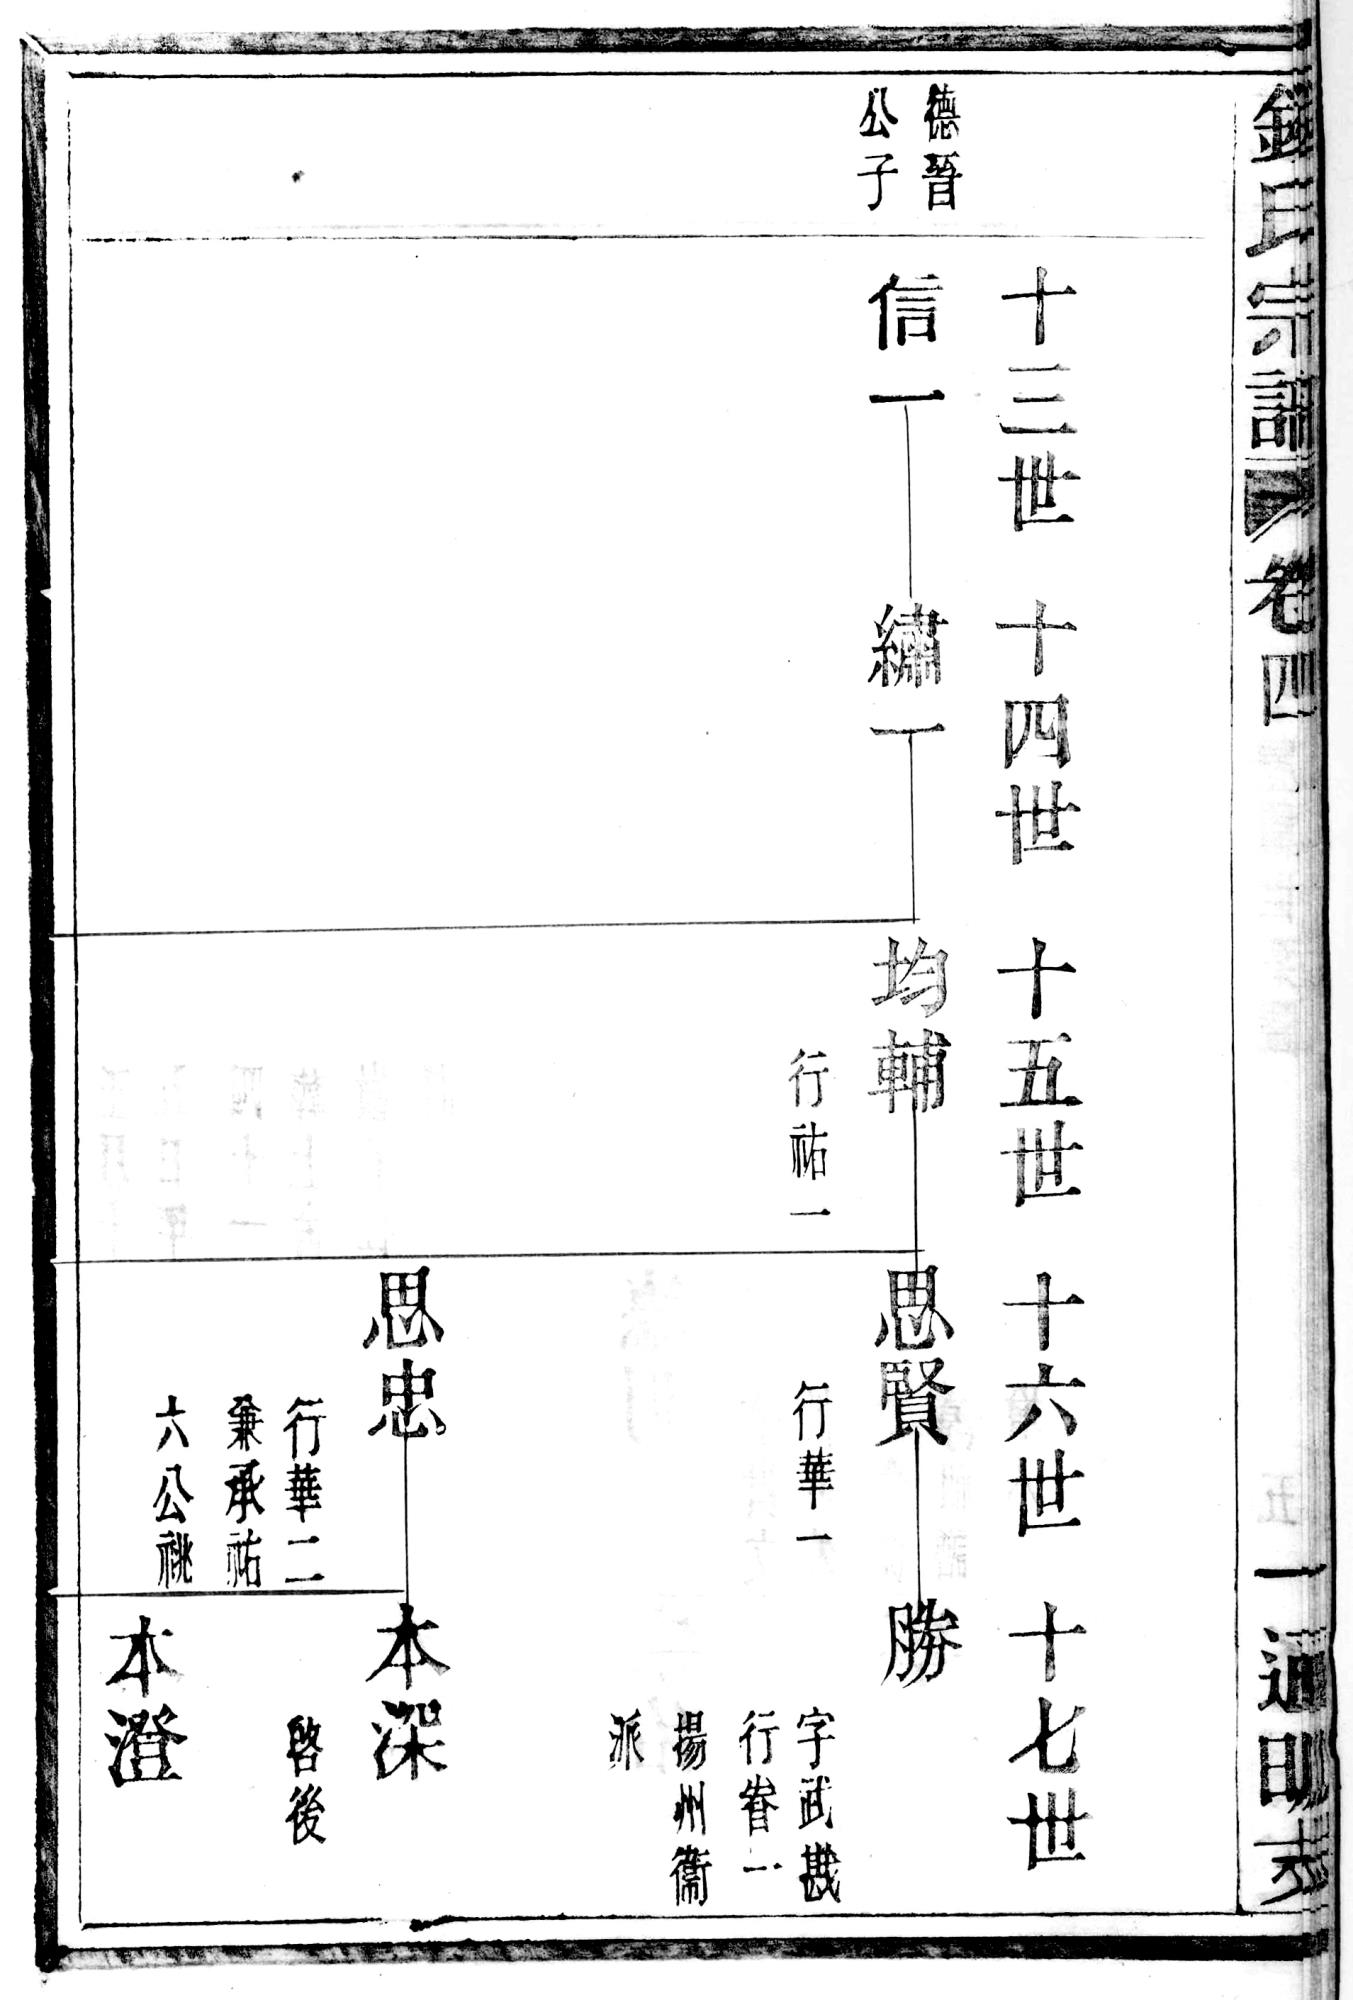 德晉
公子
十三世
十四世
十五世
十六世
十七世
信一
繡一
均輔
行祐一
思賢
行華一
勝
字武戡
行眷一
揚州衞
派
思忠
行華二
兼承祐
六公祧
本深
啓後
本澄
氏宗譜
卷四
一